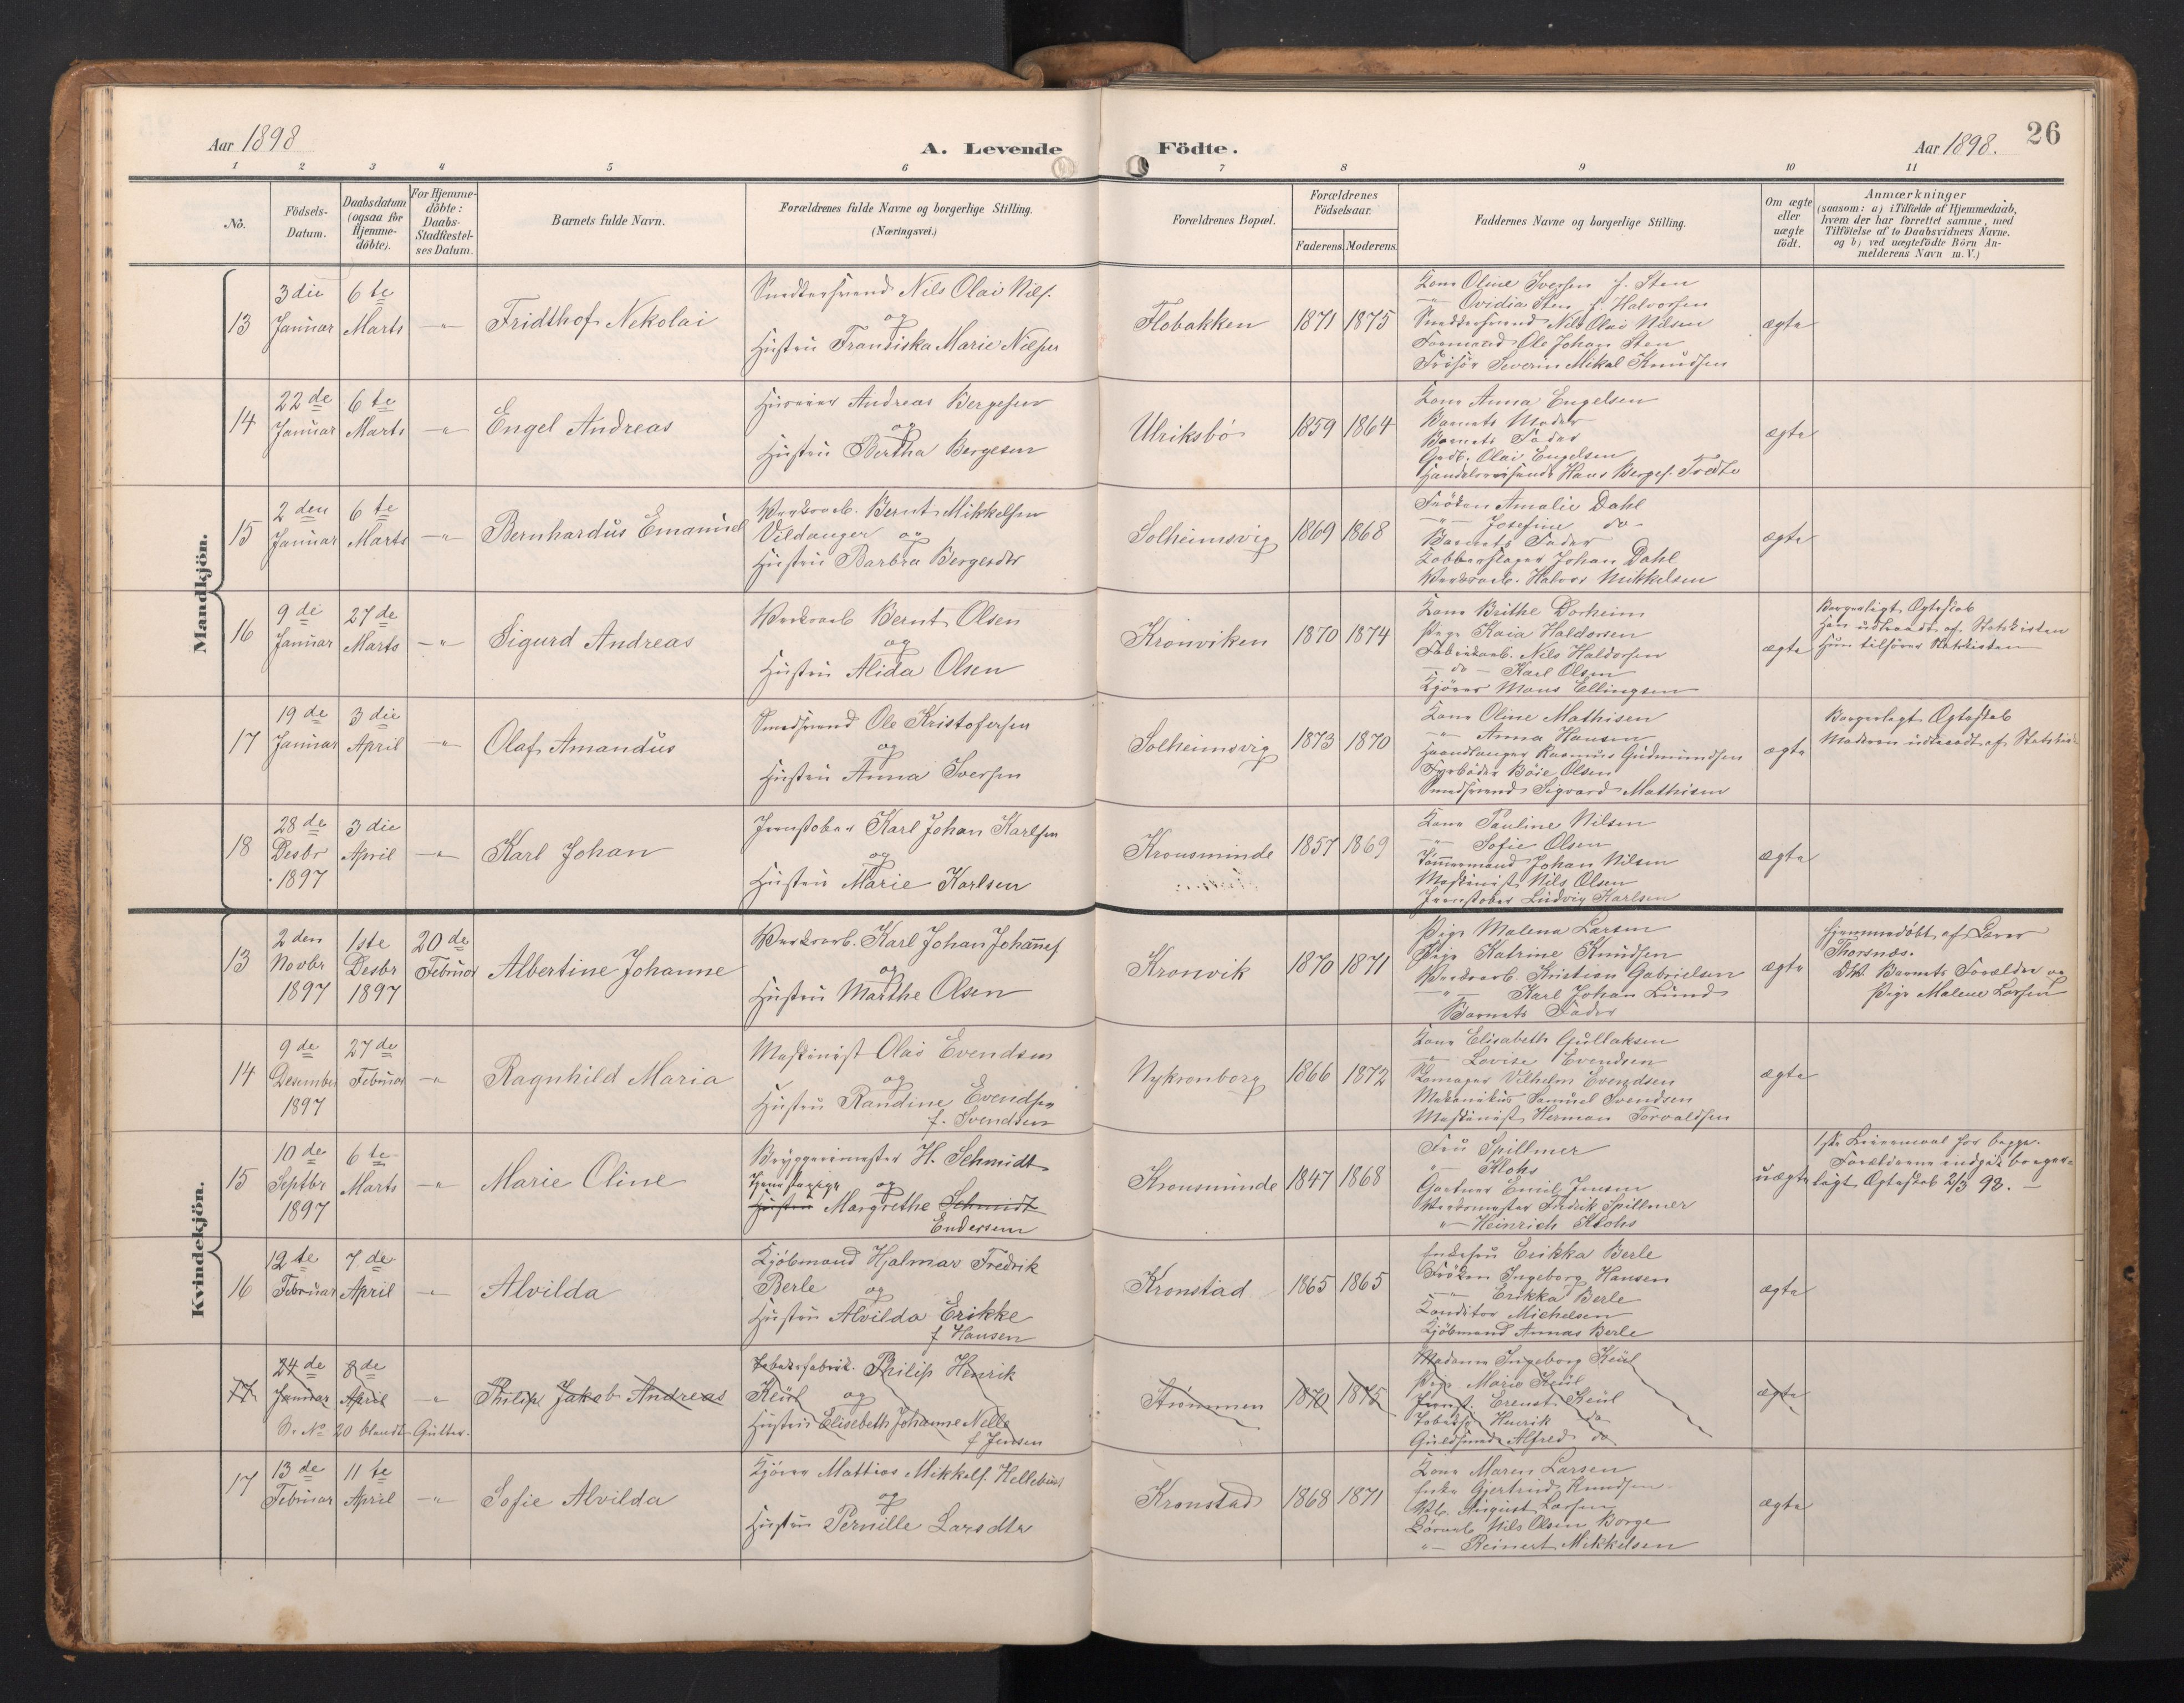 Aar 1898
A. Levende Födte.
Aar 1898.
26
1 2 3 4 5 6 7 8 9 10 11
No.
Födsels-Datum.
Daabsdatum (ogsaa for Hjemmedöbte).
For Hjemmedöbte: Daabs-Stadfæstelses Datum.
Barnets fulde Navn.
Forældrenes fulde Navne og borgerlige Stilling.
(Næringsvei.)
Forældrenes Bopæl.
Forældrenes Födselsaar.
Faderens. Moderens.
Faddernes Navne og borgerlige Stilling.
Om ægte eller uægte födt.
Anmærkninger
(saasom: a) i Tilfælde af Hjemmedaab,
hvem der har forrettet samme, med
Tilföielse af to Daabsvidners Navne.
og b) ved uægtefödte Börn An-
melderens Navn m.V.)
Mandkjön.
13
3die Januar
6te Marts
-"-
Fridthof Nekolai
Nils Olai Nils.
og
Hustru Fransiska Marie Nilsen
Flobakken
1871 1875
Kone Oline Iversen f. Sten
-"- Ovidia Sten f. Halvorsen
Nils Olai Nilsen
Formand Ole Johan Sten
Frisör Severin Mikal Knudsen
ægte
14
22de Januar
6te Marts
-"-
Engel Andreas
Andreas Bergesen
og
Hustru Bertha Bergesen
Ulriksbö
1859 1864
Kone Anna Engelsen
Barnets Moder
Barnets Fader
Olai Engelsen
Hans Berges. Tvedte
ægte
15
2den Januar
6te Marts
-"-
Bernhardus Emanuel
Værksarb. Bernt Mikkelsen
Vildanger og
Hustru Barbra Bergesdtr
Solheimsvig
1869 1868
Fröken Amalie Dahl
-"- Josefine do
Barnets Fader
Kobberslager Johan Dahl
Værksarb. Halvor Mikkelsen
ægte
16
9de Januar
27de Marts
-"-
Sigurd Andreas
Værksarb Bernt Olsen
og
Hustru Alida Olsen
Kronviken
1870 1874
Kone Brithe Dorheim
Pige Kaia Haldorsen
Fabrikarb. Nils Haldorsen
- do - Karl Olsen
Kjörer Mons Ellingsen
ægte
Borgerligt Ægteskab
Han udtraadt af Statskirken
Hun tilhörer Statskirken
17
19de Januar
3die April
-"-
Olaf Amandus
Smedsvend Ole Kristofersen
og
Hustru Anna Iversen
Solheimsvig
1873 1870
Kone Oline Mathisen
-"- Anna Hansen
Haandlanger Rasmus Gudmundsen
Fyrböder Böie Olsen
Smedsvend Sigvard Mathisen
ægte
Borgerligt Ægteskab
Moderen udtraadt af
18
28de Desbr 1897
3die April
-"-
Karl Johan
Jernstöber Karl Johan Karlsen
og
Hustru Marie Karlsen
Kronsminde
1857 1869
Kone Pauline Nilsen
-"- Sofie Olsen
Tömmermand Johan Nilsen
Maskinist Nils Olsen
Jernstöber Ludvig Karlsen
ægte
Kvindekjön.
13
2den Novbr 1897
1ste Desbr 1897
20de Februar
Albertine Johanne
Værksarb. Karl Johan Johannes.
og
Hustru Marthe Olsen
Kronvik
1870 1871
Pige Malena Larsen
Pige Katrine Knudsen
Værksarb. Kristian Gabrielsen
-"- Karl Johan Lund
Barnets Fader
ægte
Hjemmedöbt af Lærer
Thorsnæs.
DV. Barnets Forældre og
Pige Malene Larsen
14
9de Desember 1897
27de Februar
-"-
Ragnhild Maria
Maskinist Olai Evendsen
og
Hustru Randine Evendsen
f. Svendsen
Nykronborg
1866 1872
Kone Elisabeth Gullaksen
-"- Lovise Evendsen
Vilhelm Evendsen
Mekanikus Samuel Svendsen
Maskinist Herman Torvaldsen
ægte
15
10de Septbr 1897
6te Marts
-"-
Marie Oline
Bryggerimester H. Schmidt
Tjenestepige og
Hustru Margrethe Schmidt
Endersen
Kronsminde
1847 1868
Fru Spillmer
"- Klohs
Gartner Emil Jensen
Værksmester Fredrik Spillmer
"- Heinrich Klohs
uægte
1ste Leiermaal for begge.
Forældrene indgik borger-
ligt Ægteskab 2/3 98.
16
12te Februar
7de April
-"-
Alvilda
Kjöbmand Hjalmar Fredrik
Berle og
Hustru Alvilda Erikke
f Hansen
Kronstad
1865 1865
Enkefru Erikka Berle
Fröken Ingeborg Hansen
-"- Erikka Berle
Konditor Michelsen
Kjöbmand Annas Berle
ægte
17
24de Januar
8de April
-"-
Philip Jakob Andreas
Tobaksfabrik. Philip Henrik
Keül og
Hustru Elisebeth Johanne Nelle
f Jensen
Strömmen
1870 1875
Madame Ingeborg Keül
Pige Marie Keül
Ernst Keül
Henrik do
Guldsmed Alfred do
ægte
Se No 20 blandt Gutter.
17
13de Februar
11te April
-"-
Sofie Alvilda
Kjörer Mattias Mikkels. Hellebust
og
Hustru Pernille Larsdtr
Kronstad
1868 1871
Kone Maren Larsen
Enke Gjertrud Knudsen
August Larsen
Nils Olsen Borge
"- Reinert Mikkelsen
ægte